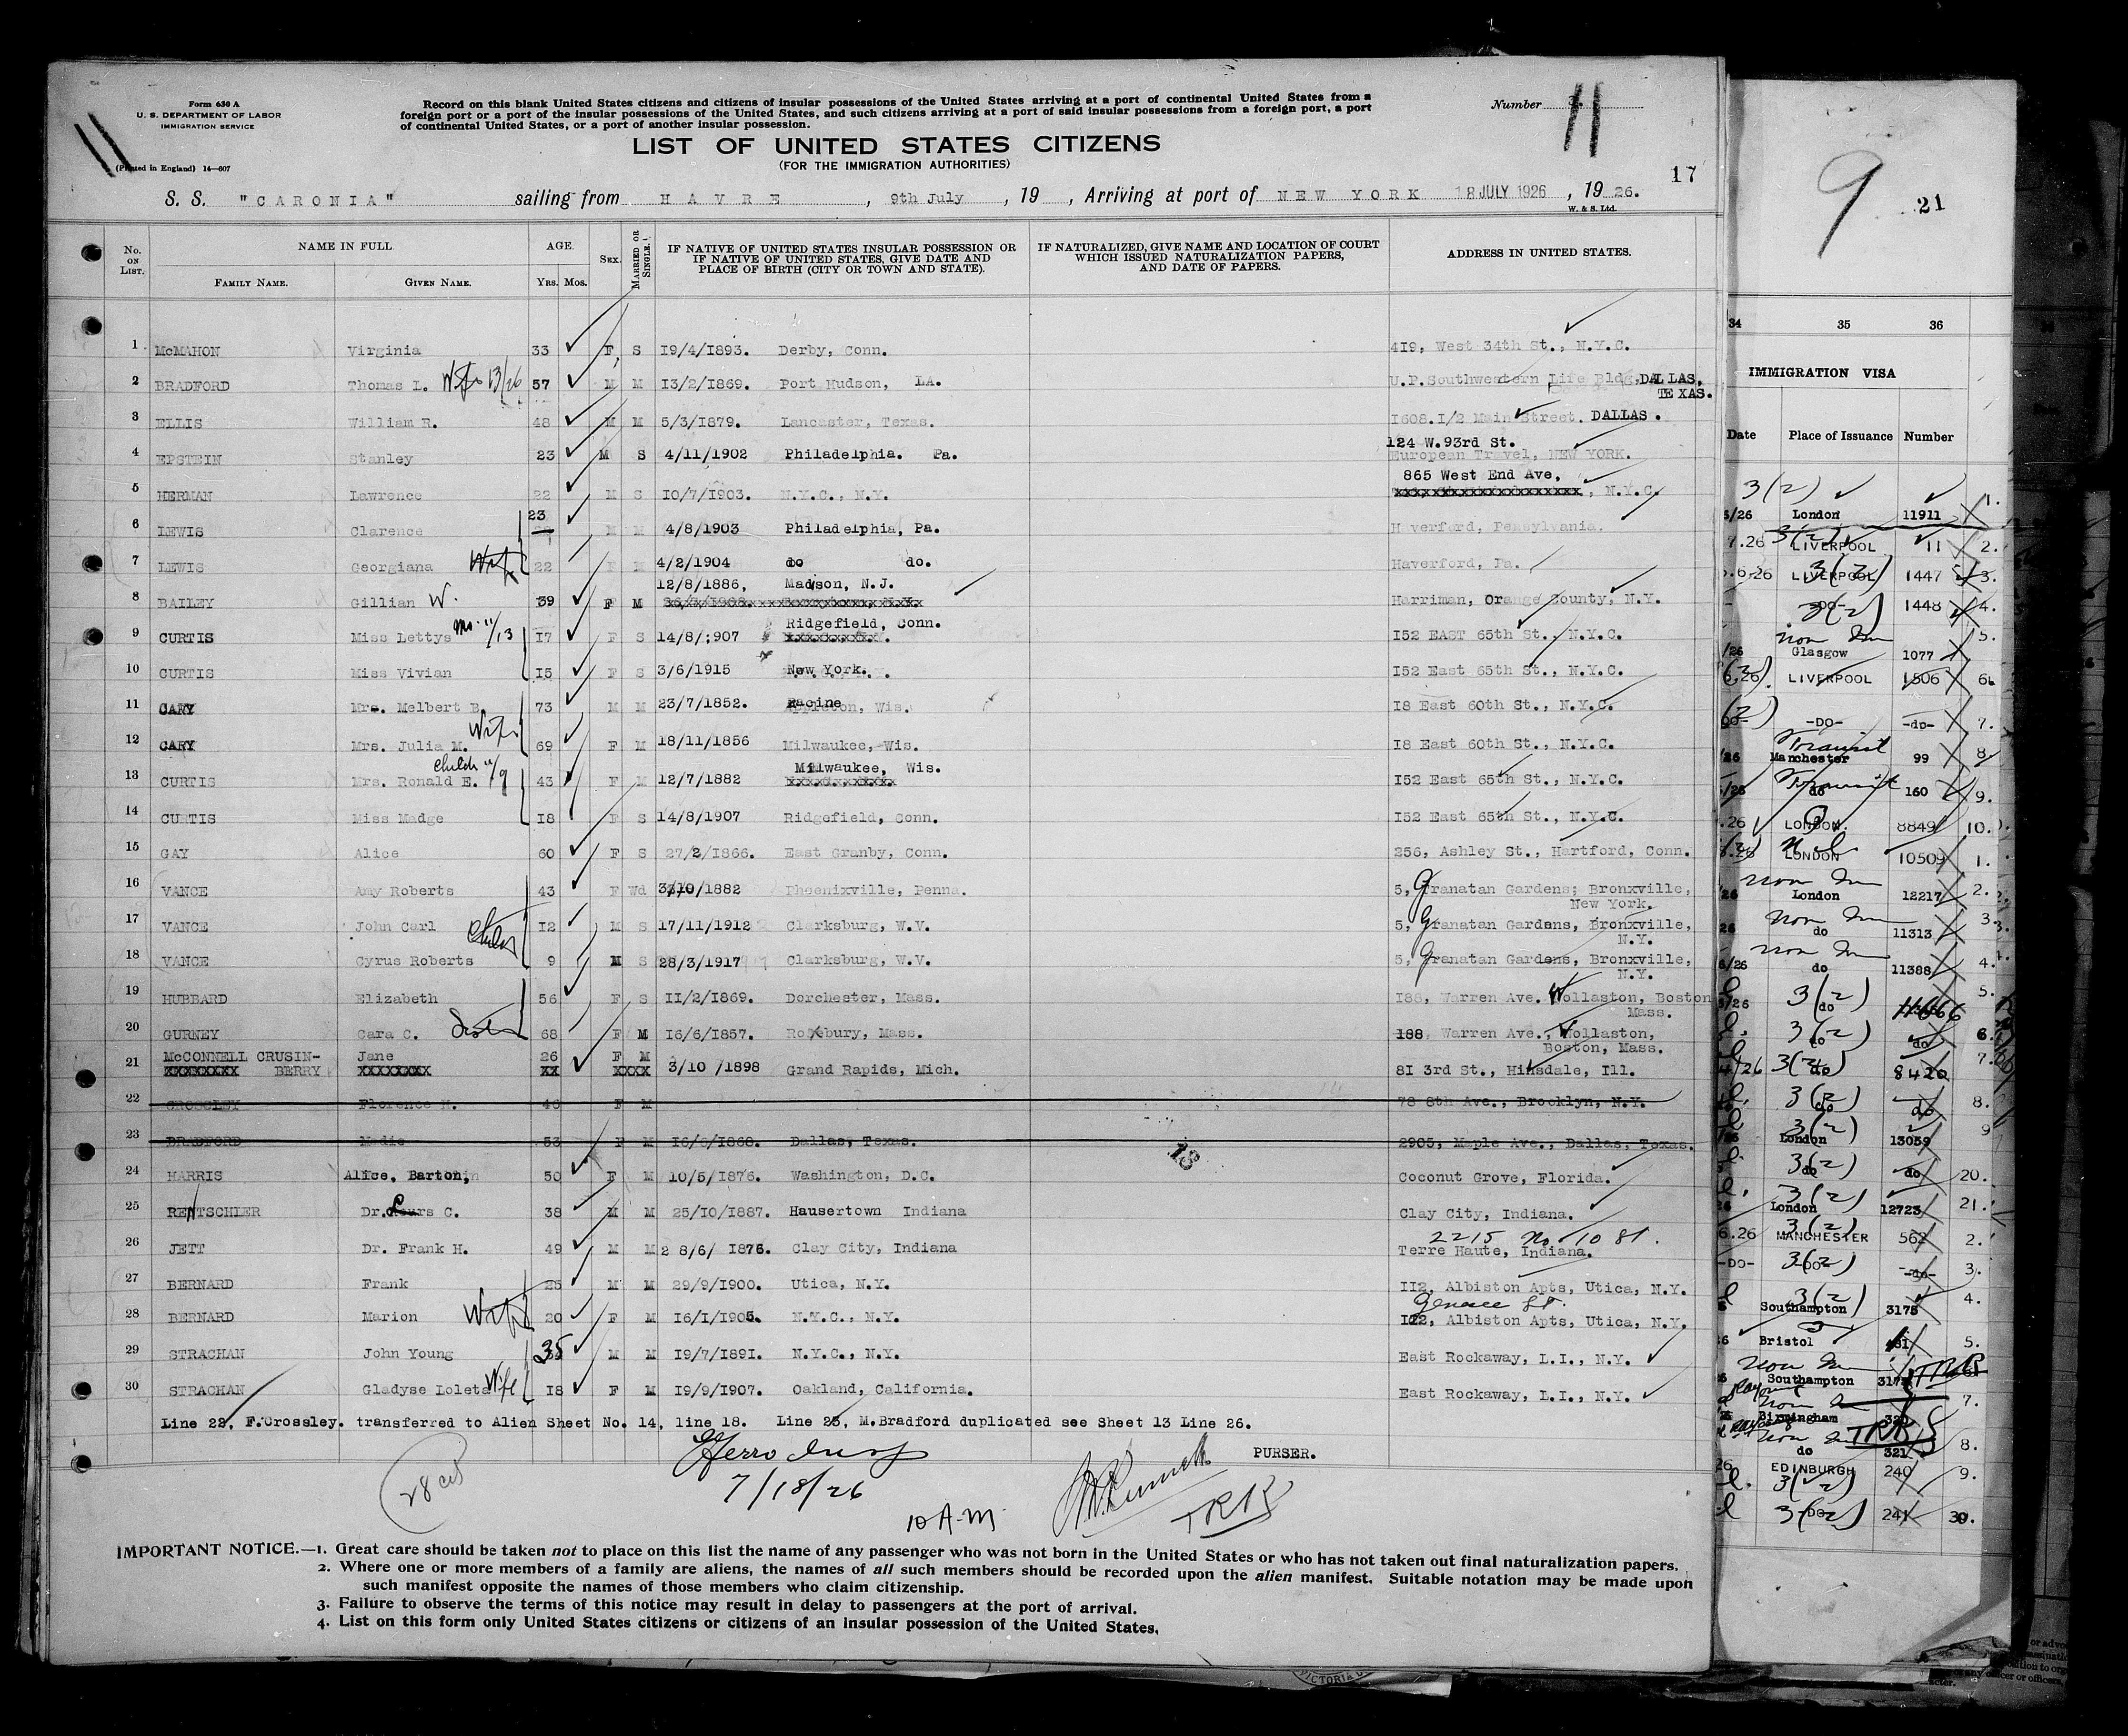 Form 630 A
U. S. DEPARTMENT OF LABOR
IMMIGRATION SERVICE
(Printed in England) 14—607
11
Record on this blank United States citizens and citizens of insular possessions of the United States arriving at a port of continental United States from a
foreign port or a port of the insular possessions of the United States, and such citizens arriving at a port of said insular possessions from a foreign port, a port
of continental United States, or a port of another insular possession.
Number
11
LIST OF UNITED STATES CITIZENS
(FOR THE IMMIGRATION AUTHORITIES)
17
S. S. "CARONIA" sailing from HAVRE, 9th July, 19 , Arriving at port of NEW YORK 18 JULY 1926, 1926.
W. & S. Ltd.
No. ON LIST. NAME IN FULL FAMILY NAME. GIVEN NAME. AGE. Yrs. Mos. SEX. MARRIED OR SINGLE. IF NATIVE OF UNITED STATES INSULAR POSSESSION OR IF NATIVE OF UNITED STATES, GIVE DATE AND PLACE OF BIRTH (CITY OR TOWN AND STATE). IF NATURALIZED, GIVE NAME AND LOCATION OF COURT WHICH ISSUED NATURALIZATION PAPERS, AND DATE OF PAPERS. ADDRESS IN UNITED STATES.
1 McMAHON Virginia 33 F S 19/4/1893. Derby, Conn. 419, West 34th St., N.Y.C.
2 BRADFORD Thomas L. 13/26 57 M M 13/2/1869. Port Hudson, LA. U.P.Southwestern Life Bldg, DALLAS, TEXAS.
3 ELLIS William R. 48 M M 5/3/1879. Lancaster, Texas. 1608.1/2 Main Street. DALLAS.
124 W.93rd St.
4 EPSTEIN Stanley 23 M S 4/11/1902 Philadelphia. Pa. European Travel, NEW YORK.
865 West End Ave,
5 HERMAN Lawrence 22 M S 10/7/1903. N.Y.C., N.Y. , N.Y.C.
6 LEWIS Clarence 23 M M 4/8/1903 Philadelphia, Pa. Haverford, Pensylvania.
7 LEWIS Georgiana Wife 22 F M 4/2/1904 do do. Haverford, Pa.
12/8/1886, Madison, N.J.
8 BAILEY Gillian W. 39 F M Harriman, Orange County, N.Y.
Ridgefield, Conn.
9 CURTIS Miss Lettys Mo. 11/13 17 F S 14/8/;907 152 EAST 65th St., N.Y.C.
10 CURTIS Miss Vivian 15 F S 3/6/1915 New York. 152 East 65th St., N.Y.C.
11 CARY Mr. Melbert B. 73 M M 23/7/1852. Racine Wis. 18 East 60th St., N.Y.C.
12 CARY Mrs. Julia M. Wife 69 F M 18/11/1856 Milwaukee, Wis. 18 East 60th St., N.Y.C.
Milwaukee, Wis.
13 CURTIS Mrs. Ronald E. Childn 11/9 43 F M 12/7/1882 152 East 65th St., N.Y.C.
14 CURTIS Miss Madge 18 F S 14/8/1907 Ridgefield, Conn. 152 East 65th St., N.Y.C.
15 GAY Alice 60 F S 27/2/1866. East Granby, Conn. 256, Ashley St., Hartford, Conn.
16 VANCE Amy Roberts 43 F Wd 3/10/1882 Phoenixville, Penna. 5, Granatan Gardens; Bronxville, New York.
17 VANCE John Carl 12 M S 17/11/1912 Clarksburg, W.V. 5, Granatan Gardens, Bronxville, N.Y.
18 VANCE Cyrus Roberts 9 M S 28/3/1917 Clarksburg, W.V. 5, Granatan Gardens, Bronxville, N.Y.
19 HUBBARD Elizabeth 56 F S 11/2/1869. Dorchester, Mass. 188, Warren Ave. Wollaston, Boston Mass.
20 GURNEY Cara C. Sister 68 F M 16/6/1857. Roxbury, Mass. 188, Warren Ave., Wollaston, Boston, Mass.
21 McCONNELL CRUSIN-BERRY Jane 26 F M 3/10/1898 Grand Rapids, Mich. 81 3rd St., Hinsdale, Ill.
22 CROSSLEY Florence M. 46 F M 78 8th Ave., Brooklyn, N.Y.
23 BRADFORD Madie 53 F M 16/8/1868. Dallas, Texas. 2905, Maple Ave., Dallas, Texas.
13
24 HARRIS Alice, Barton, 50 F M 10/5/1876. Washington, D.C. Coconut Grove, Florida.
25 RENTSCHLER Dr. C. 38 M M 25/10/1887. Hausertown Indiana Clay City, Indiana.
2215 No. 10 St.
26 JETT Dr. Frank H. 49 M M 28/6/ 1876. Clay City, Indiana Terre Haute, Indiana.
27 BERNARD Frank 25 M M 29/9/1900. Utica, N.Y. 112, Albiston Apts, Utica, N.Y.
28 BERNARD Marion Wife 20 F M 16/1/1905. N.Y.C., N.Y. 112, Albiston Apts, Utica, N.Y.
29 STRACHAN John Young 35 M M 19/7/1891. N.Y.C., N.Y. East Rockaway, L.I., N.Y.
30 STRACHAN Gladyse Loleta Wife 18 F M 19/9/1907. Oakland, California. East Rockaway, L.I., N.Y.
Line 22, F.Crossley. transferred to Alien Sheet No. 14, line 18. Line 23, M.Bradford duplicated see Sheet 13 Line 26.
PURSER.
7/18/26
10 A.M.
TRK
28
IMPORTANT NOTICE.—1. Great care should be taken not to place on this list the name of any passenger who was not born in the United States or who has not taken out final naturalization papers.
2. Where one or more members of a family are aliens, the names of all such members should be recorded upon the alien manifest. Suitable notation may be made upon
such manifest opposite the names of those members who claim citizenship.
3. Failure to observe the terms of this notice may result in delay to passengers at the port of arrival.
4. List on this form only United States citizens or citizens of an insular possession of the United States.
9
21
34 35 36
IMMIGRATION VISA
Date Place of Issuance Number
3(2)
London 11911 1.
LIVERPOOL 11 2.
LIVERPOOL 1447 3.
-DO- 1448 4.
Glasgow 1077 5.
LIVERPOOL 1506 6.
-DO- -do- 7.
Transit
Manchester 99 8
Transit
do 160 9.
LONDON 8849 10.
LONDON 10509 1.
London 12217 2.
do 11313 3
do 11388 4.
3(2)
do 11666 5.
3(2)
do do 6.
3(2) do 8420 7.
3(2)
do do 8.
3(2)
London 13059 9
3(2)
do do 20.
3(2)
London 12723 21.
3(2)
MANCHESTER 562 2.
-DO- -do- 3.
3(2)
Southampton 3175 4.
Bristol 5.
Southampton
Birmingham 320 7.
do 321 8.
EDINBURGH 240 9.
3(2)
-DO- 241 30.